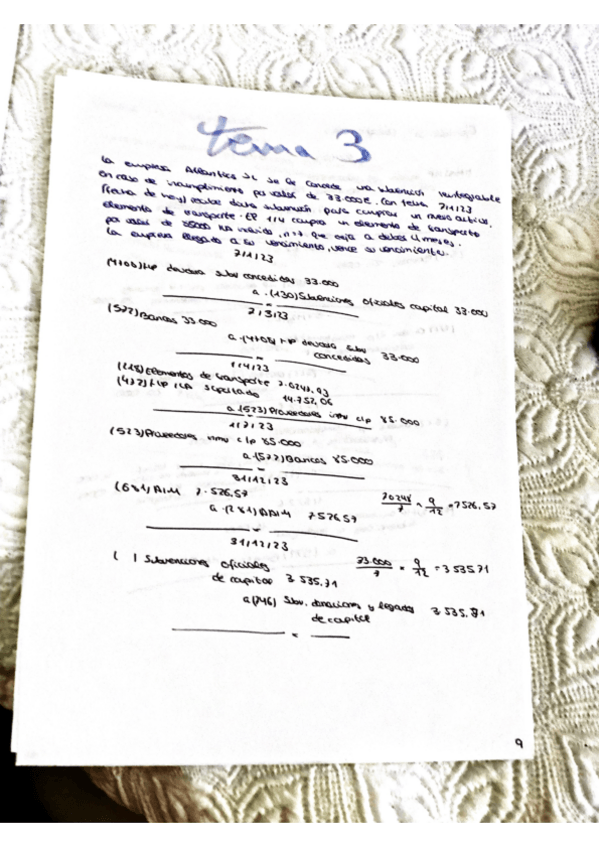 tema 3
La empresa Atlantica SL se le concede una subvención reintegrable
en caso de incumplimiento por valor de 33.000€. Con fecha
(fecha de hoy) recibe dicha subvención para comprar un nuevo activo.
elemento de transporte. El 1/4 compra un elemento de transporte
por valor de 85000 IVA incluido, que deja a deber 4 meses.
La empresa llegado a su vencimiento, vence su vencimiento.
7/1/23
(4708) HP deudora subv concedidas 33.000
a (130) Subvenciones oficiales capital 33.000
2/3/23
(572) Bancos 33.000
a (4708) HP deudora subv
concedidas 33.000
1/4/23
(218) Elementos de transporte
(472) HP IVA soportado 14.752,06
a (523) Proveedores inmv c/p 85.000
(523) Proveedores inmv c/p 85.000
a (572) Bancos 85.000
31/12/23
(681) AIM 7.526,57
a (281) AAIM 7526,57
70248/7 × 9/12 = 7526,57
31/12/23
( ) Subvenciones oficiales
de capital 3 535,71
33.000/7 × 9/12 = 3 535,71
a (746) Subv, donaciones y legados 3 535,71
de capital
9